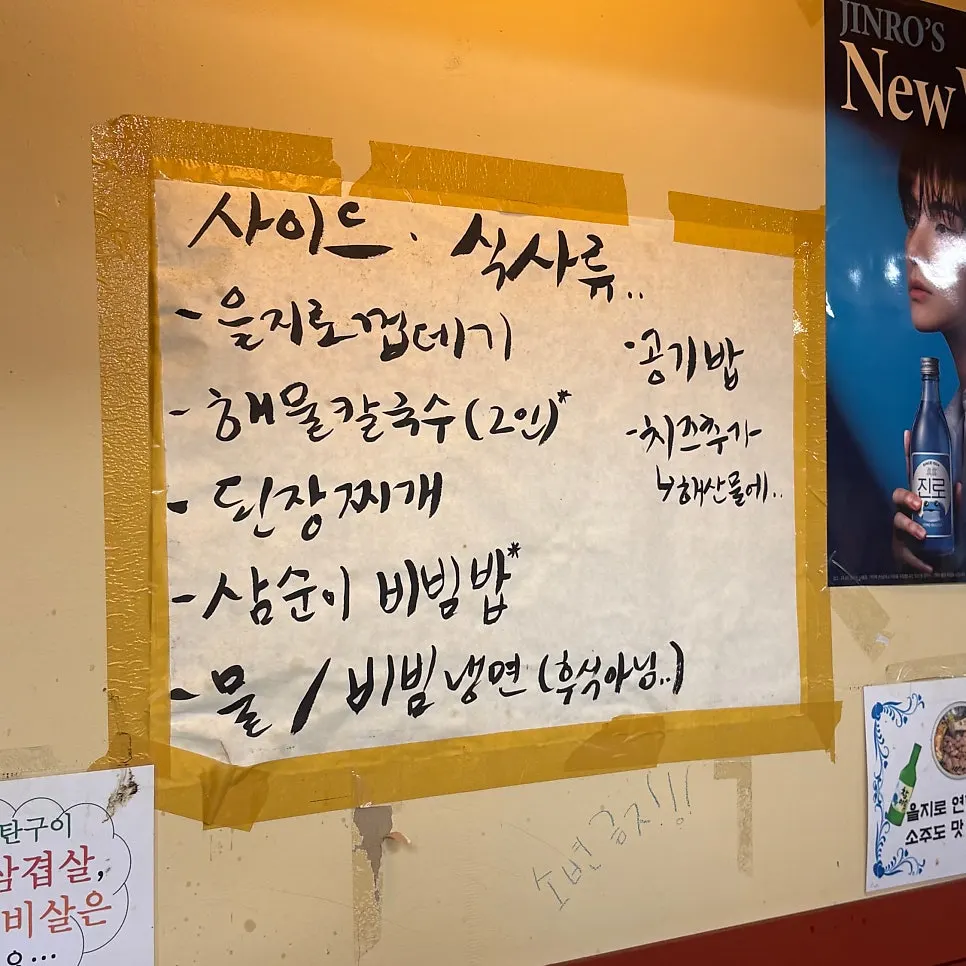 사이드 · 식사류..
- 을지로껍데기
- 해물칼국수 (2인)*
- 된장찌개
- 삼순이 비빔밥*
- 물 / 비빔냉면 (후식아님..)
· 공기밥
- 치즈추가
↳ 해산물에..
소변금지!!!
JINRO'S
New
진로
탄구이
삼겹살,
비살은
요...
을지로 연
소주도 맛